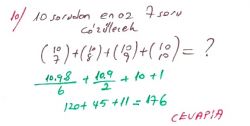 10) 10 sorudan en az 7 soru
çözülecek
(10 7) + (10 8) + (10 9) + (10 10) = ?
10.9.8/6 + 10.9/2 + 10 + 1
120 + 45 + 11 = 176
CEVAP A